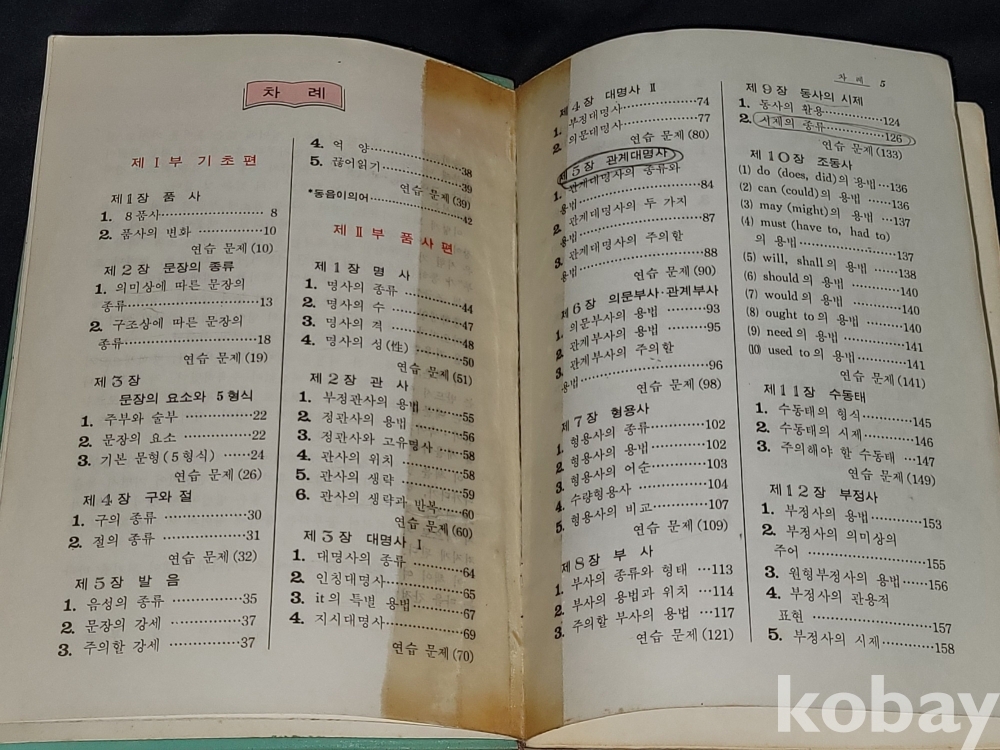 차 례
제 I 부 기초편
제1장 품 사
1. 8품사 8
2. 품사의 변화 10
연습 문제(10)
제2장 문장의 종류
1. 의미상에 따른 문장의
종류 13
2. 구조상에 따른 문장의
종류 18
연습 문제(19)
제3장
문장의 요소와 5형식
1. 주부와 술부 22
2. 문장의 요소 22
3. 기본 문형(5형식) 24
연습 문제(26)
제4장 구와 절
1. 구의 종류 30
2. 절의 종류 31
연습 문제(32)
제5장 발 음
1. 음성의 종류 35
2. 문장의 강세 37
3. 주의할 강세 37
4. 억 양 38
5. 끊어읽기 39
연습 문제(39)
*동음이의어 42
제 II 부 품사편
제1장 명 사
1. 명사의 종류 44
2. 명사의 수 47
3. 명사의 격 48
4. 명사의 성(性) 50
연습 문제(51)
제2장 관 사
1. 부정관사의 용법 55
2. 정관사의 용법 56
3. 정관사와 고유명사 58
4. 관사의 위치 58
5. 관사의 생략 59
6. 관사의 생략과 반복 60
연습 문제(60)
제3장 대명사 I
1. 대명사의 종류 64
2. 인칭대명사 65
3. it의 특별 용법 67
4. 지시대명사 69
연습 문제(70)
차 례 5
제4장 대명사 II
1. 부정대명사 74
2. 의문대명사 77
연습 문제(80)
제5장 관계대명사
1. 관계대명사의 종류와
용법 84
2. 관계대명사의 두 가지
용법 87
3. 관계대명사의 주의할
용법 88
연습 문제(90)
제6장 의문부사·관계부사
1. 의문부사의 용법 93
2. 관계부사의 용법 95
3. 관계부사의 주의할
용법 96
연습 문제(98)
제7장 형용사
1. 형용사의 종류 102
2. 형용사의 용법 102
3. 형용사의 어순 103
4. 수량형용사 104
5. 형용사의 비교 107
연습 문제(109)
제8장 부 사
1. 부사의 종류와 형태 113
2. 부사의 용법과 위치 114
3. 주의할 부사의 용법 117
연습 문제(121)
제9장 동사의 시제
1. 동사의 활용 124
2. 시제의 종류 126
연습 문제(133)
제10장 조동사
(1) do (does, did)의 용법 136
(2) can (could)의 용법 136
(3) may (might)의 용법 137
(4) must (have to, had to)
의 용법 137
(5) will, shall의 용법 138
(6) should의 용법 140
(7) would의 용법 140
(8) ought to의 용법 140
(9) need의 용법 141
(10) used to의 용법 141
연습 문제(141)
제11장 수동태
1. 수동태의 형식 145
2. 수동태의 시제 146
3. 주의해야 할 수동태 147
연습 문제(149)
제12장 부정사
1. 부정사의 용법 153
2. 부정사의 의미상의
주어 155
3. 원형부정사의 용법 156
4. 부정사의 관용적
표현 157
5. 부정사의 시제 158
kobay